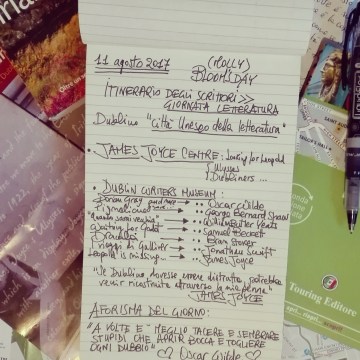 11 agosto 2017
(MOLLY)
BLOOMSDAY
ITINERARIO DEGLI SCRITTORI >>
GIORNATA LETTERATURA
Dublino "Città Unesco della letteratura"
• JAMES JOYCE CENTRE: looking for Leopold
Ulysses
Dubliners ...
• DUBLIN WRITERS MUSEUM:
Dorian Gray
Oscar Wilde
Pigmalione
George Bernard Shaw
"Quando sarai vecchia"
William Butler Yeats
Waiting for Godot
Samuel Beckett
Dracula
Bram Stoker
Viaggi di Gulliver
Jonathan Swift
Leopold is missing...
James Joyce
"Se Dublino dovesse essere distrutta, potrebbe
venir ricostruita attraverso la mia penna"
JAMES JOYCE
AFORISMA DEL GIORNO:
"A VOLTE E' MEGLIO TACERE E SEMBRARE
STUPIDI CHE APRIR BOCCA E TOGLIERE
OGNI DUBBIO"
Oscar Wilde
Touring Editore